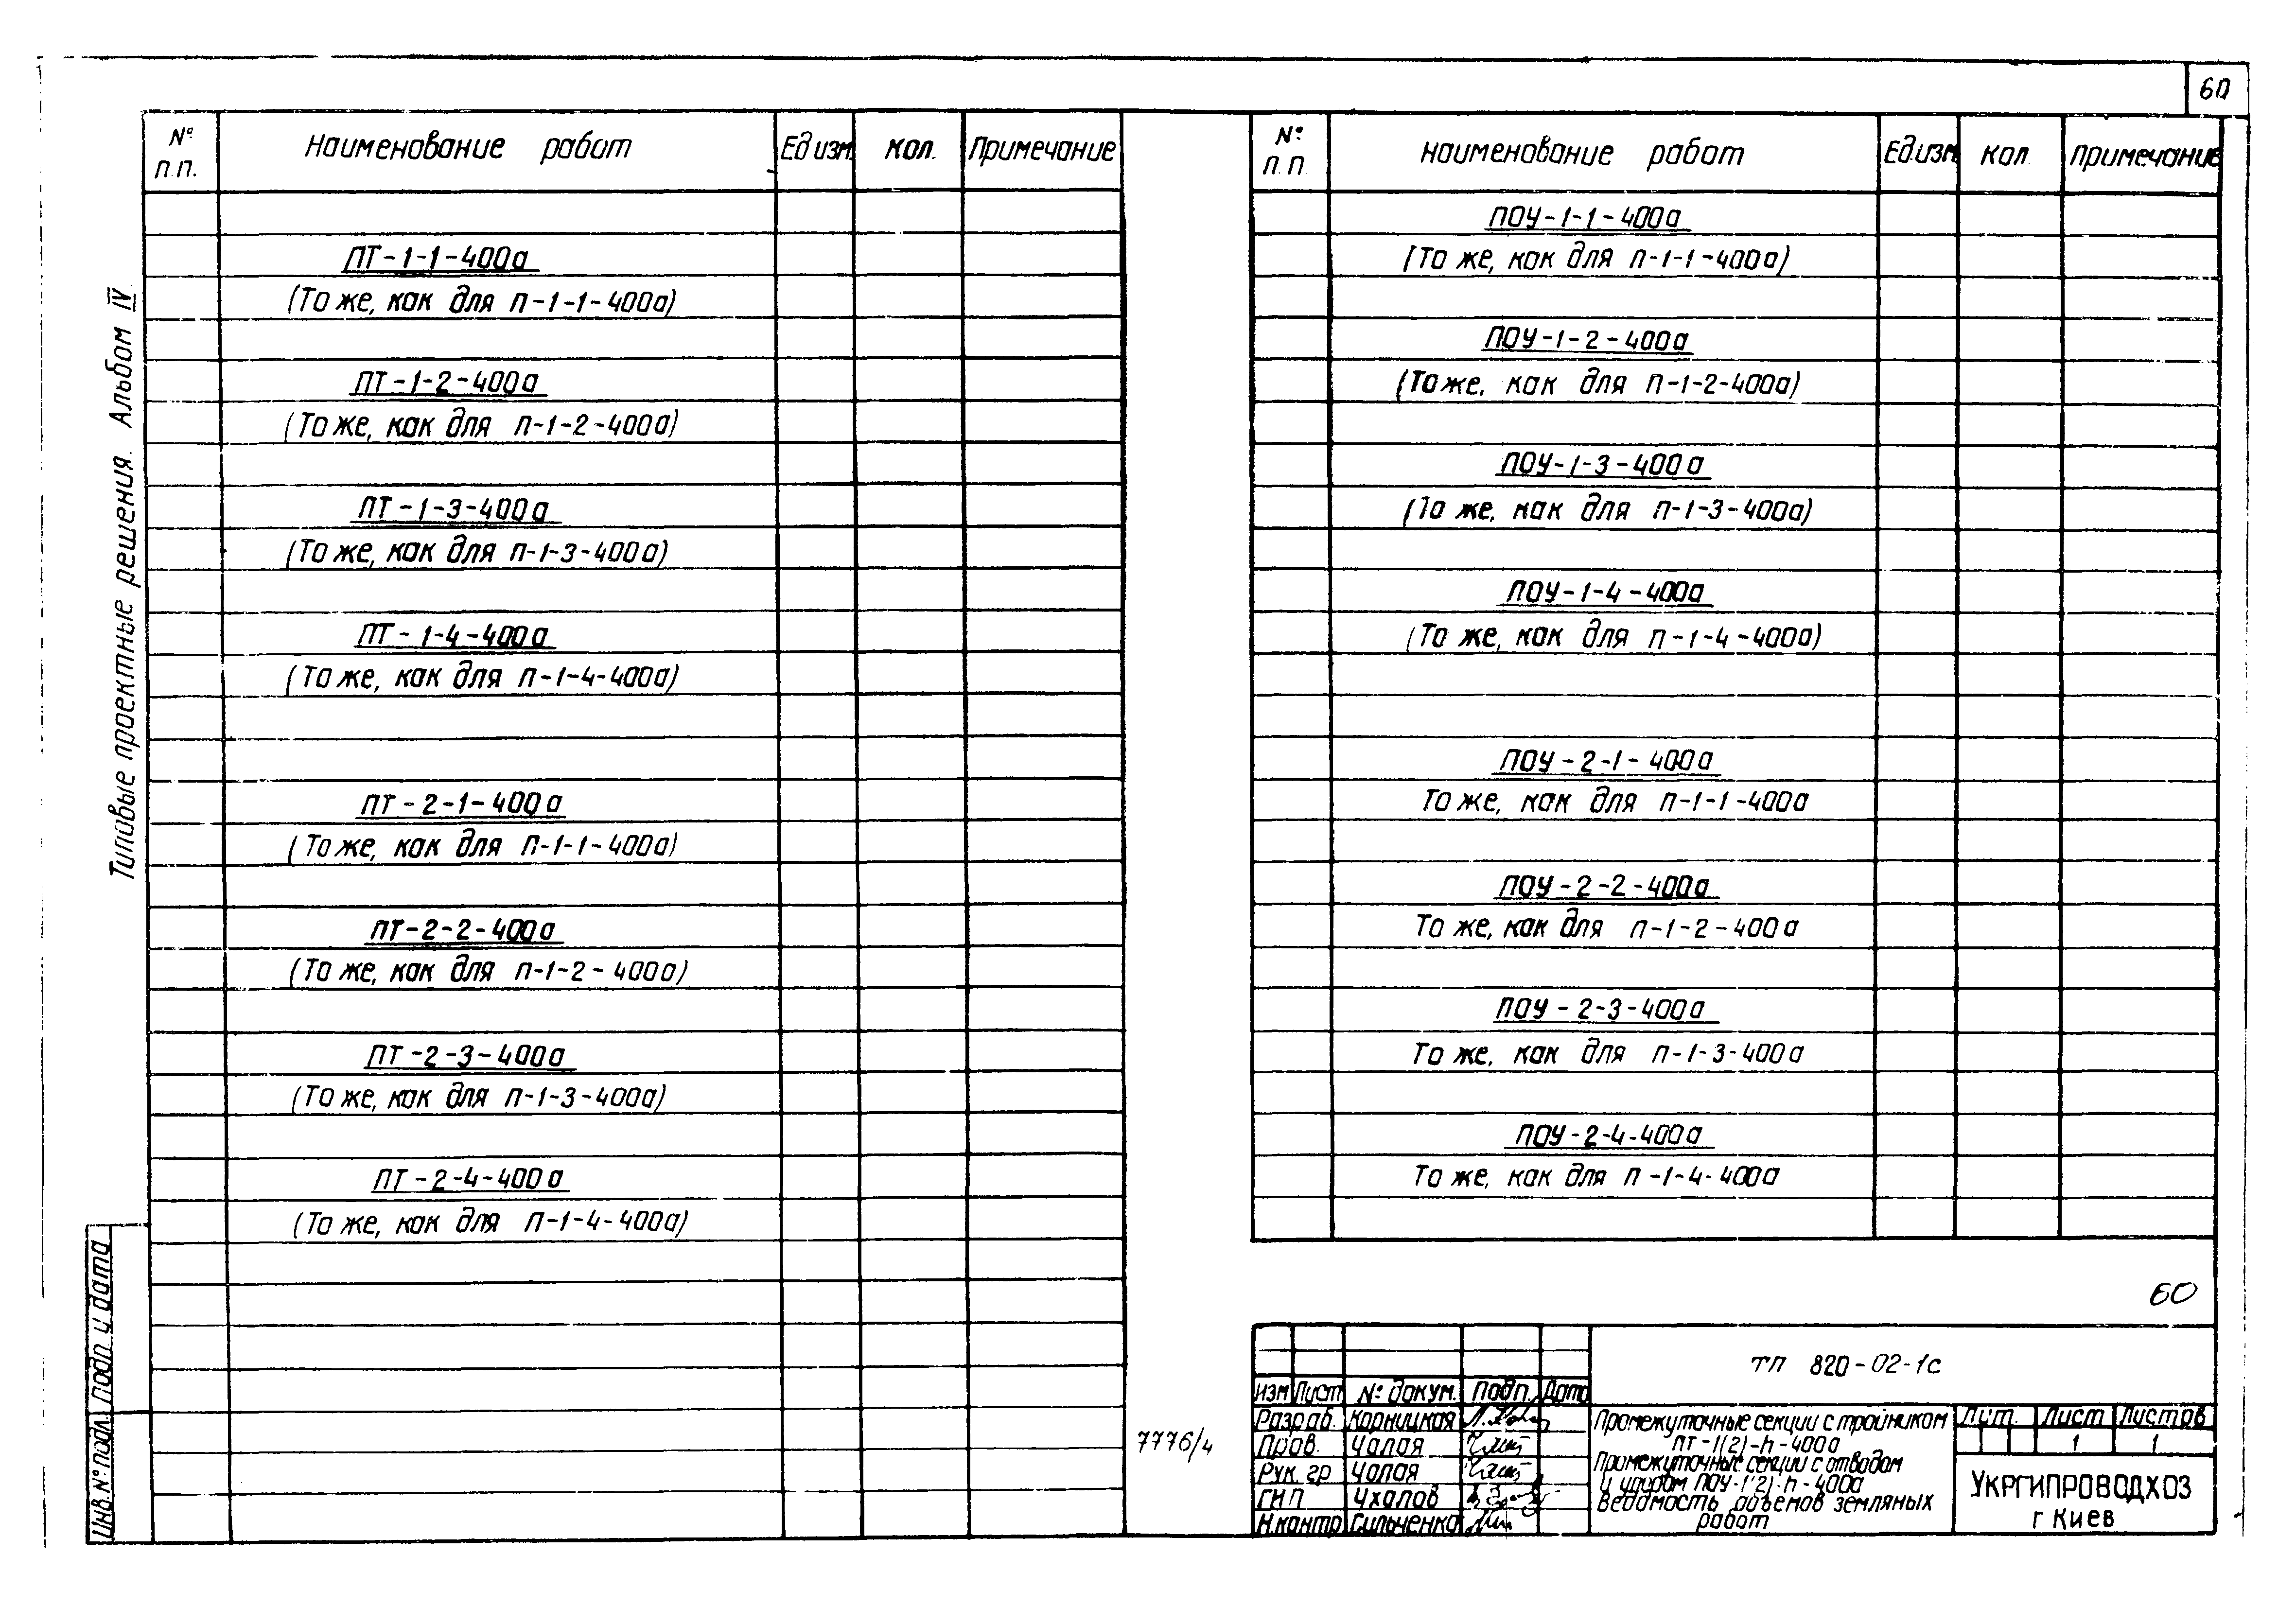 60
Типовые проектные решения. Альбом IV
№ п.п. Наименование работ Ед изм. кол. Примечание
ПТ-1-1-400а
(То же, как для П-1-1-400а)
ПТ-1-2-400а
(То же, как для П-1-2-400а)
ПТ-1-3-400а
(То же, как для П-1-3-400а)
ПТ-1-4-400а
(То же, как для П-1-4-400а)
ПТ-2-1-400а
(То же, как для П-1-1-400а)
ПТ-2-2-400а
(То же, как для П-1-2-400а)
ПТ-2-3-400а
(То же, как для П-1-3-400а)
ПТ-2-4-400а
(То же, как для П-1-4-400а)
№ п.п. наименование работ Ед.изм кол примечание
ПОУ-1-1-400а
(То же, как для П-1-1-400а)
ПОУ-1-2-400а
(То же, как для П-1-2-400а)
ПОУ-1-3-400а
(То же, как для П-1-3-400а)
ПОУ-1-4-400а
(То же, как для П-1-4-400а)
ПОУ-2-1-400а
То же, как для П-1-1-400а
ПОУ-2-2-400а
То же, как для П-1-2-400а
ПОУ-2-3-400а
То же, как для П-1-3-400а
ПОУ-2-4-400а
То же, как для П-1-4-400а
Инв.№ подл. Подп и дата
7776/4
60
ТП 820-02-1с
Изм Лист № докум. Подп. Дата
Разраб. Корницкая
Пров. Чалая
Рук. гр Чалая
ГИП Ухалов
Н.контр Сильченко
Промежуточные секции с тройником
ПТ-1(2)-h-400а
Промежуточные секции с отводом
и упором ПОУ-1(2)-h-400а
Ведомость объемов земляных
работ
Лит. Лист Листов
1 1
УКРГИПРОВОДХОЗ
г Киев